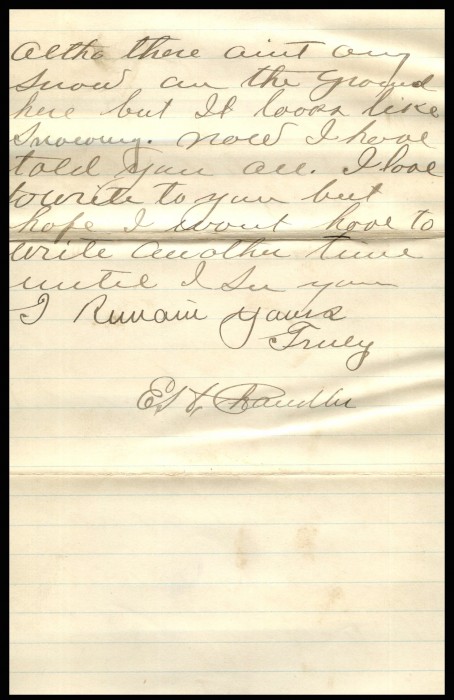 altho there aint any
snow on the ground
here but It looks like
Snowing. now I have
told you all. I love
to write to you but
hope I wont have to
write another time
until I See you
I Remain yours
Truly